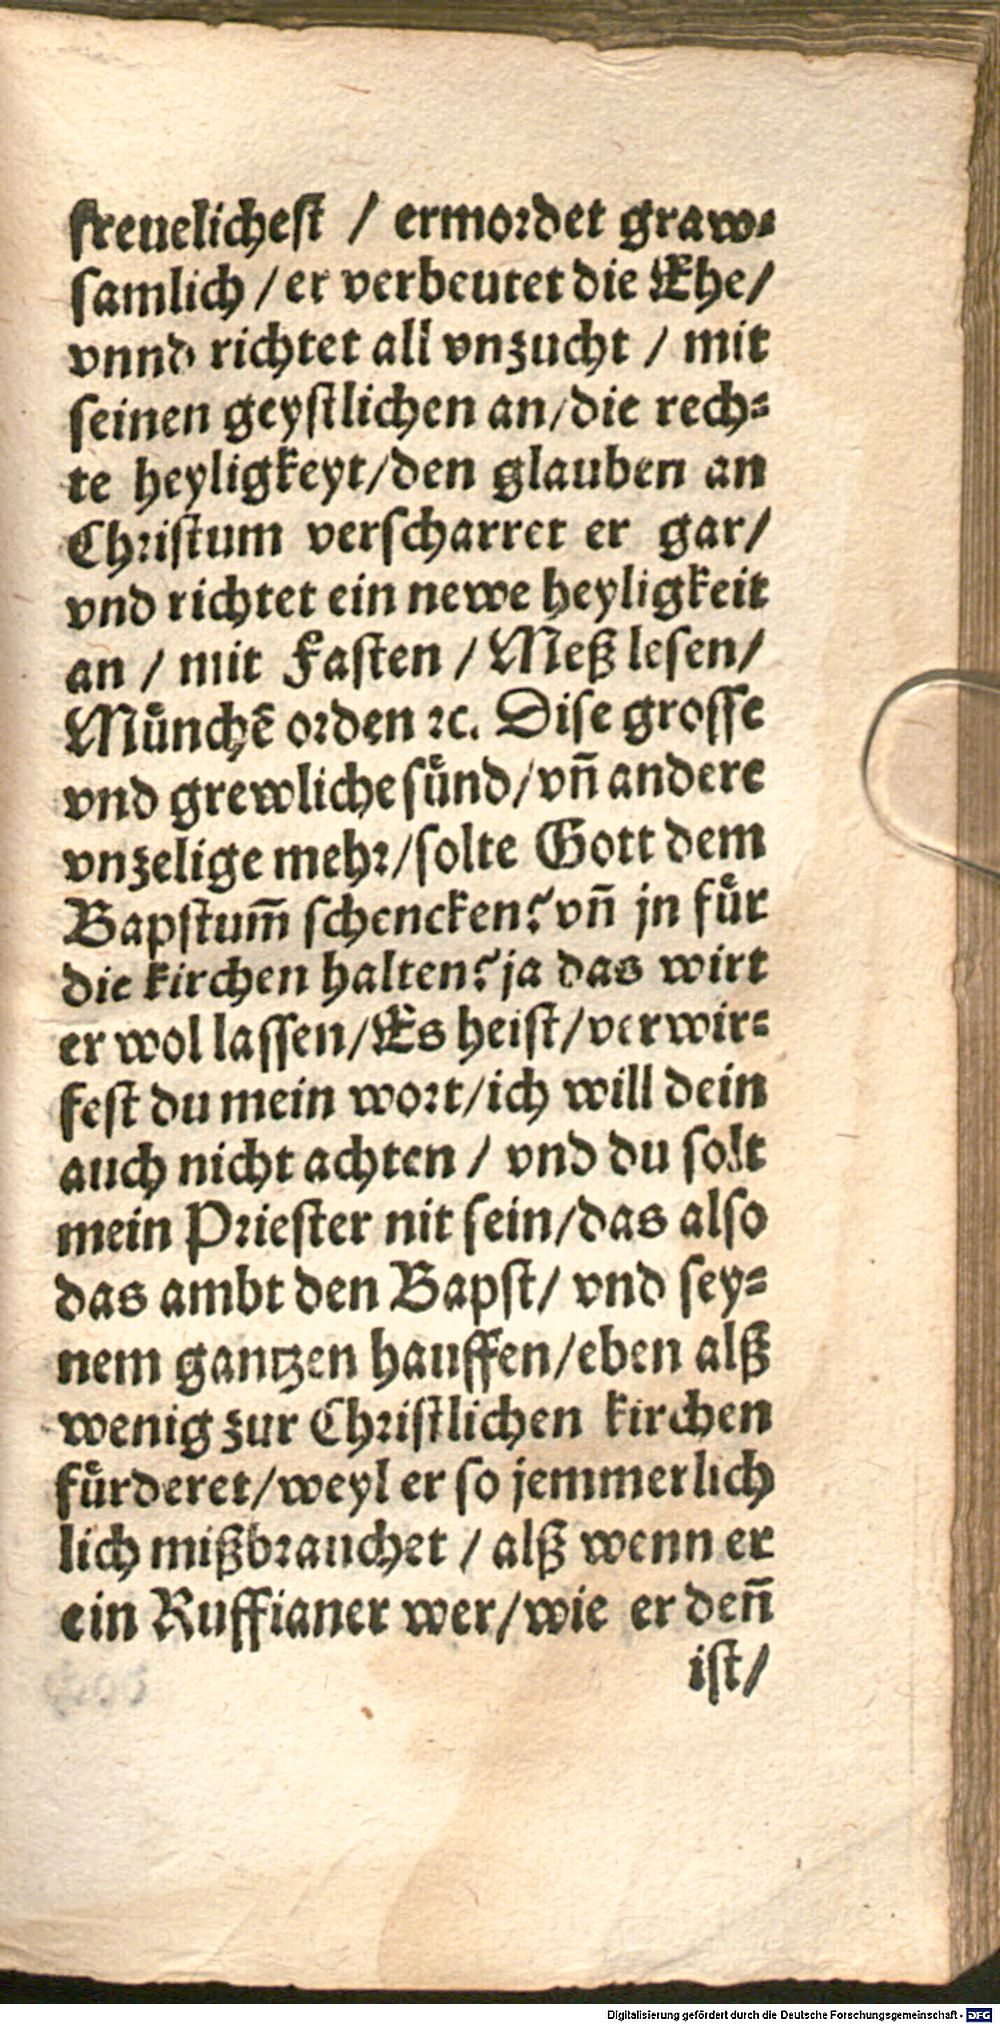 freuelichest / ermordet graw⸗
samlich / er verbeutet die Ehe /
vnnd richtet all vnzucht / mit
seinen geystlichen an / die rech⸗
te heyligkeyt / den glauben an
Christum verscharret er gar /
vnd richtet ein newe heyligkeit
an / mit Fasten / Meß lesen /
Muͤnchē orden ꝛc. Dise grosse
vnd grewliche suͤnd / vñ andere
vnzelige mehr / solte Gott dem
Bapstum̄ schencken? vñ jn fuͤr
die kirchen halten? ja das wirt
er wol lassen / Es heist / verwir⸗
fest du mein wort / ich will dein
auch nicht achten / vnd du solt
mein Priester nit sein / das also
das ambt den Bapst / vnd sey⸗
nem gantzen hauffen / eben alß
wenig zur Christlichen kirchen
fuͤrderet / weyl er so jemmerlich
lich mißbrauchet / alß wenn er
ein Ruffianer wer / wie er deñ
ist /
Digitalisierung gefördert durch die Deutsche Forschungsgemeinschaft - DFG